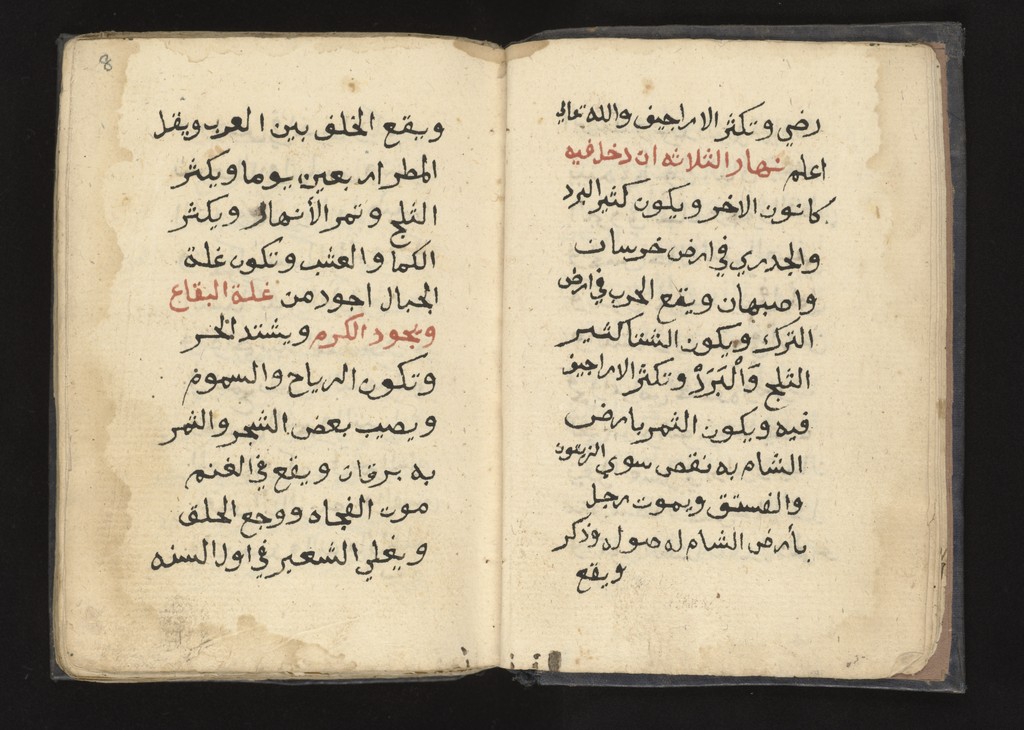 رضي وتكثر الاراجيف والله تعالي
اعلم نهار الثلاثه ان دخل فيه
كانون الاخر ويكون كثير البرد
والجدري في ارض خرسان
واصبهان ويقع الحرب في ارض
الترك ويكون الشتا كثير
الثلج وَالْبَرَدْ وتكثر الاراجيف
فيه ويكون الثمر بارض
الشام به نقص سوي الزيتون
والفستق ويموت رجل
بأرض الشام له صوله وذكر
ويقع
8
ويقع الخلف بين العرب ويقل
المطر اربعين يوما ويكثر
الثلج وتمر الأنهار ويكثر
الكما والعشب وتكون غلة
الجبال اجود من غلة البقاع
ويجود الكرم ويشتد الحر
وتكون الرياح والسموم
ويصيب بعض الشجر والثمر
به يرقان ويقع في الغنم
موت الفجاه ووجع الحلق
ويغلي الشعير في اول السنه